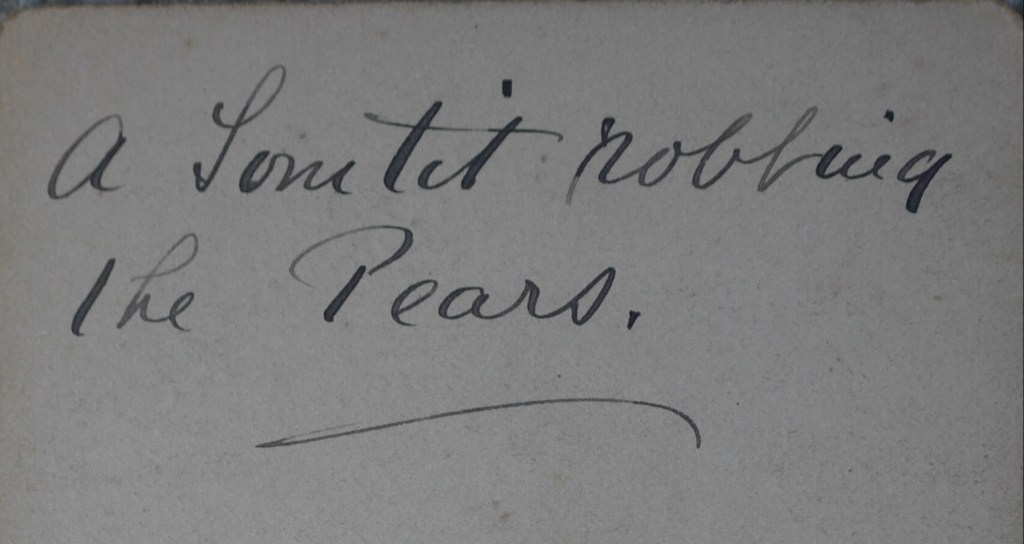 A Tomtit robbing
the Pears.